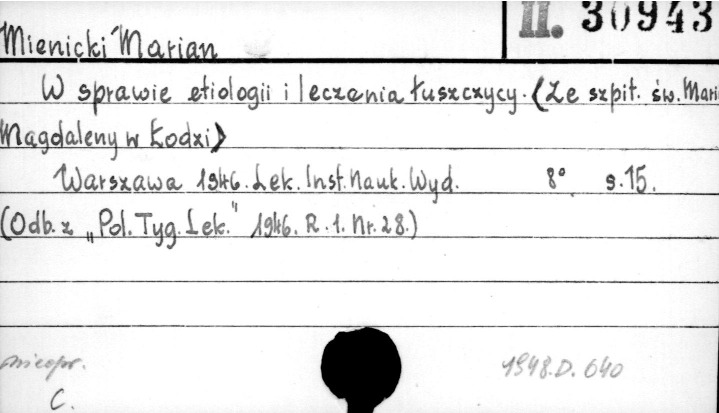 II. 30943
Mienicki Marian
W sprawie etiologii i leczenia łuszczycy. (Ze szpit. św. Mari
Magdaleny w Łodzi)
Warszawa 1946. Lek. Inst. Nauk. Wyd. 8° s. 15.
(Odb. z „Pol. Tyg. Lek." 1946. R. 1. Nr. 28.)
nieopr. 1948.D. 640
C.